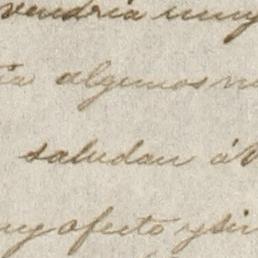 vendria muy
algunos
saludan á V
muy afecto y sin